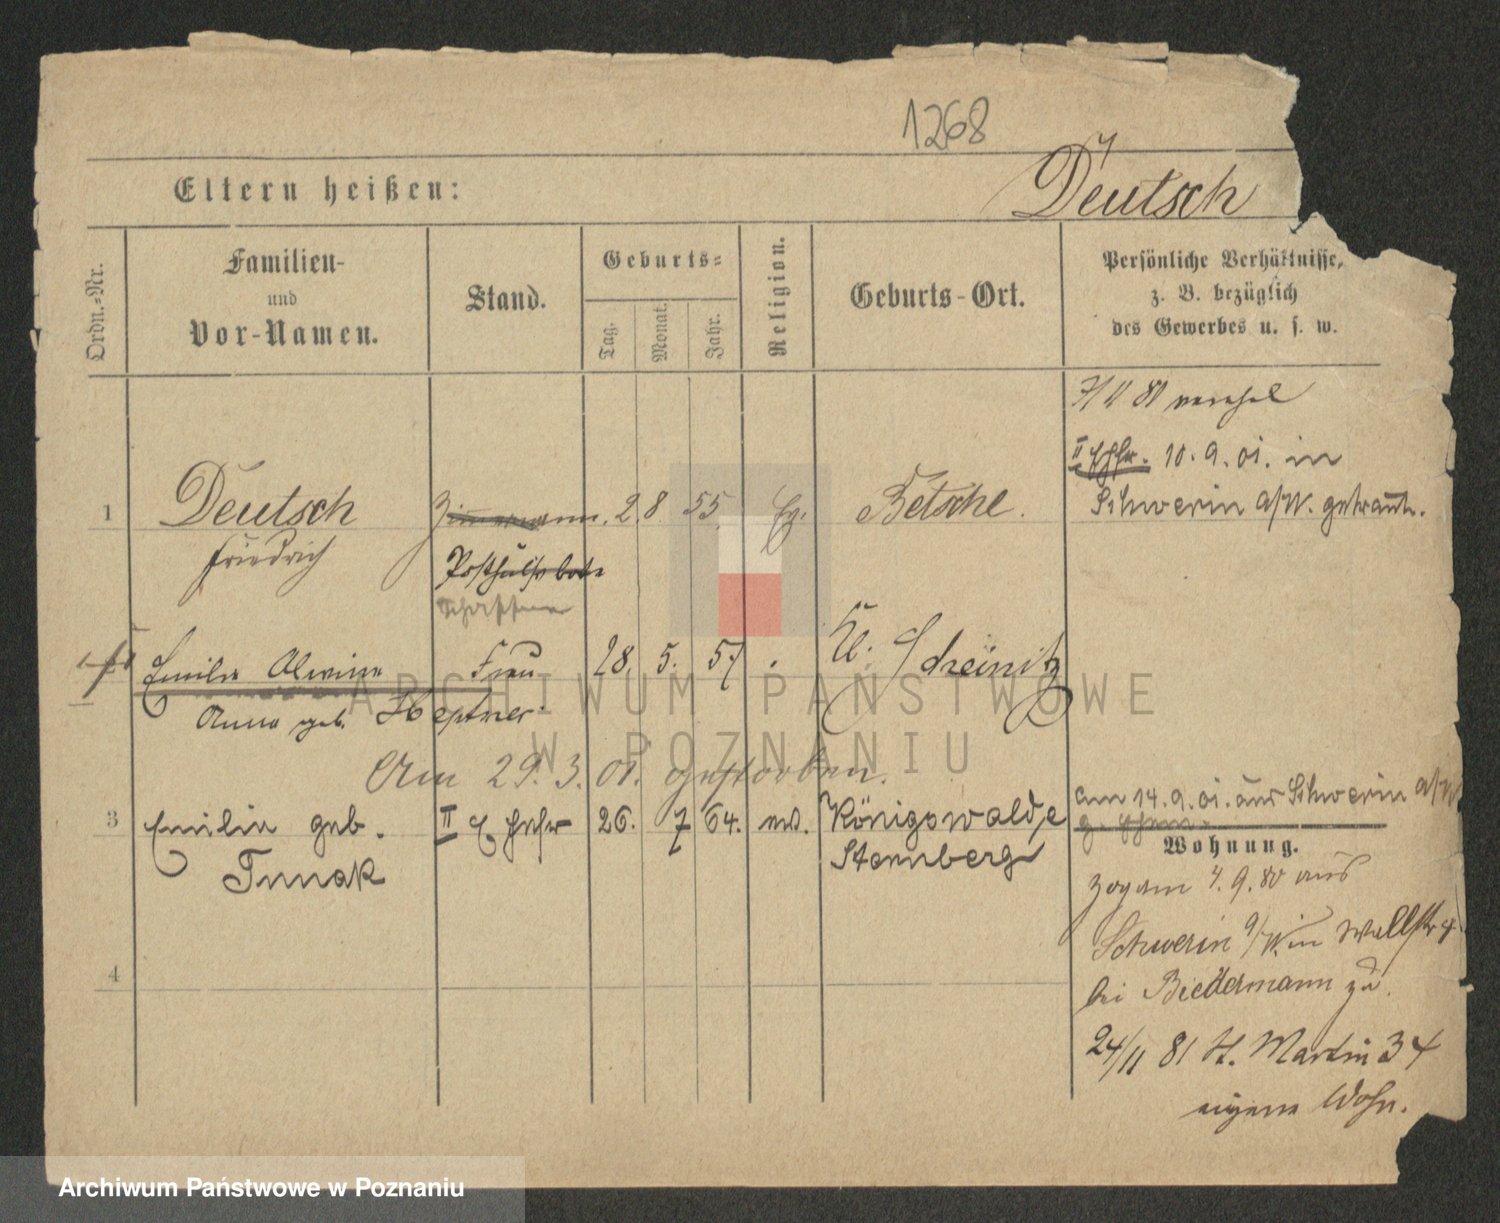 1268
Eltern heißen:
Deutsch
Ordn.-Nr.
Familien-
und
Vor-Namen.
Stand.
Geburts-
Tag.
Monat.
Jahr.
Religion.
Geburts-Ort.
Persönliche Verhältnisse,
z. B. bezüglich
des Gewerbes u. s. w.
verehel
II Ehefr. 10. 9. 01. in
Schwerin a/W. getraut.
1 Deutsch Zimmermann. 2. 8 55 Eg. Betsche.
Friedrich
Posthülfsbote
Schaffner
Emilie Alwine Frau 28. 5. 57 Kl. Schreinitz
Anna geb. Heptner
Am 29. 3. 01. gestorben.
am 14. 9. 01. aus Schwerin a/W
3 Emilie geb. II Ehefr 26. 7 64. ev. Königswalde
Sternberg
Wohnung.
zog am 4. 9. 80 aus
Schwerin a/W. in Wallstr
bei Biedermann zu.
24/11 81 St. Martin 34
eigene Wohn.
4
ARCHIWUM PAŃSTWOWE
W POZNANIU
Archiwum Państwowe w Poznaniu